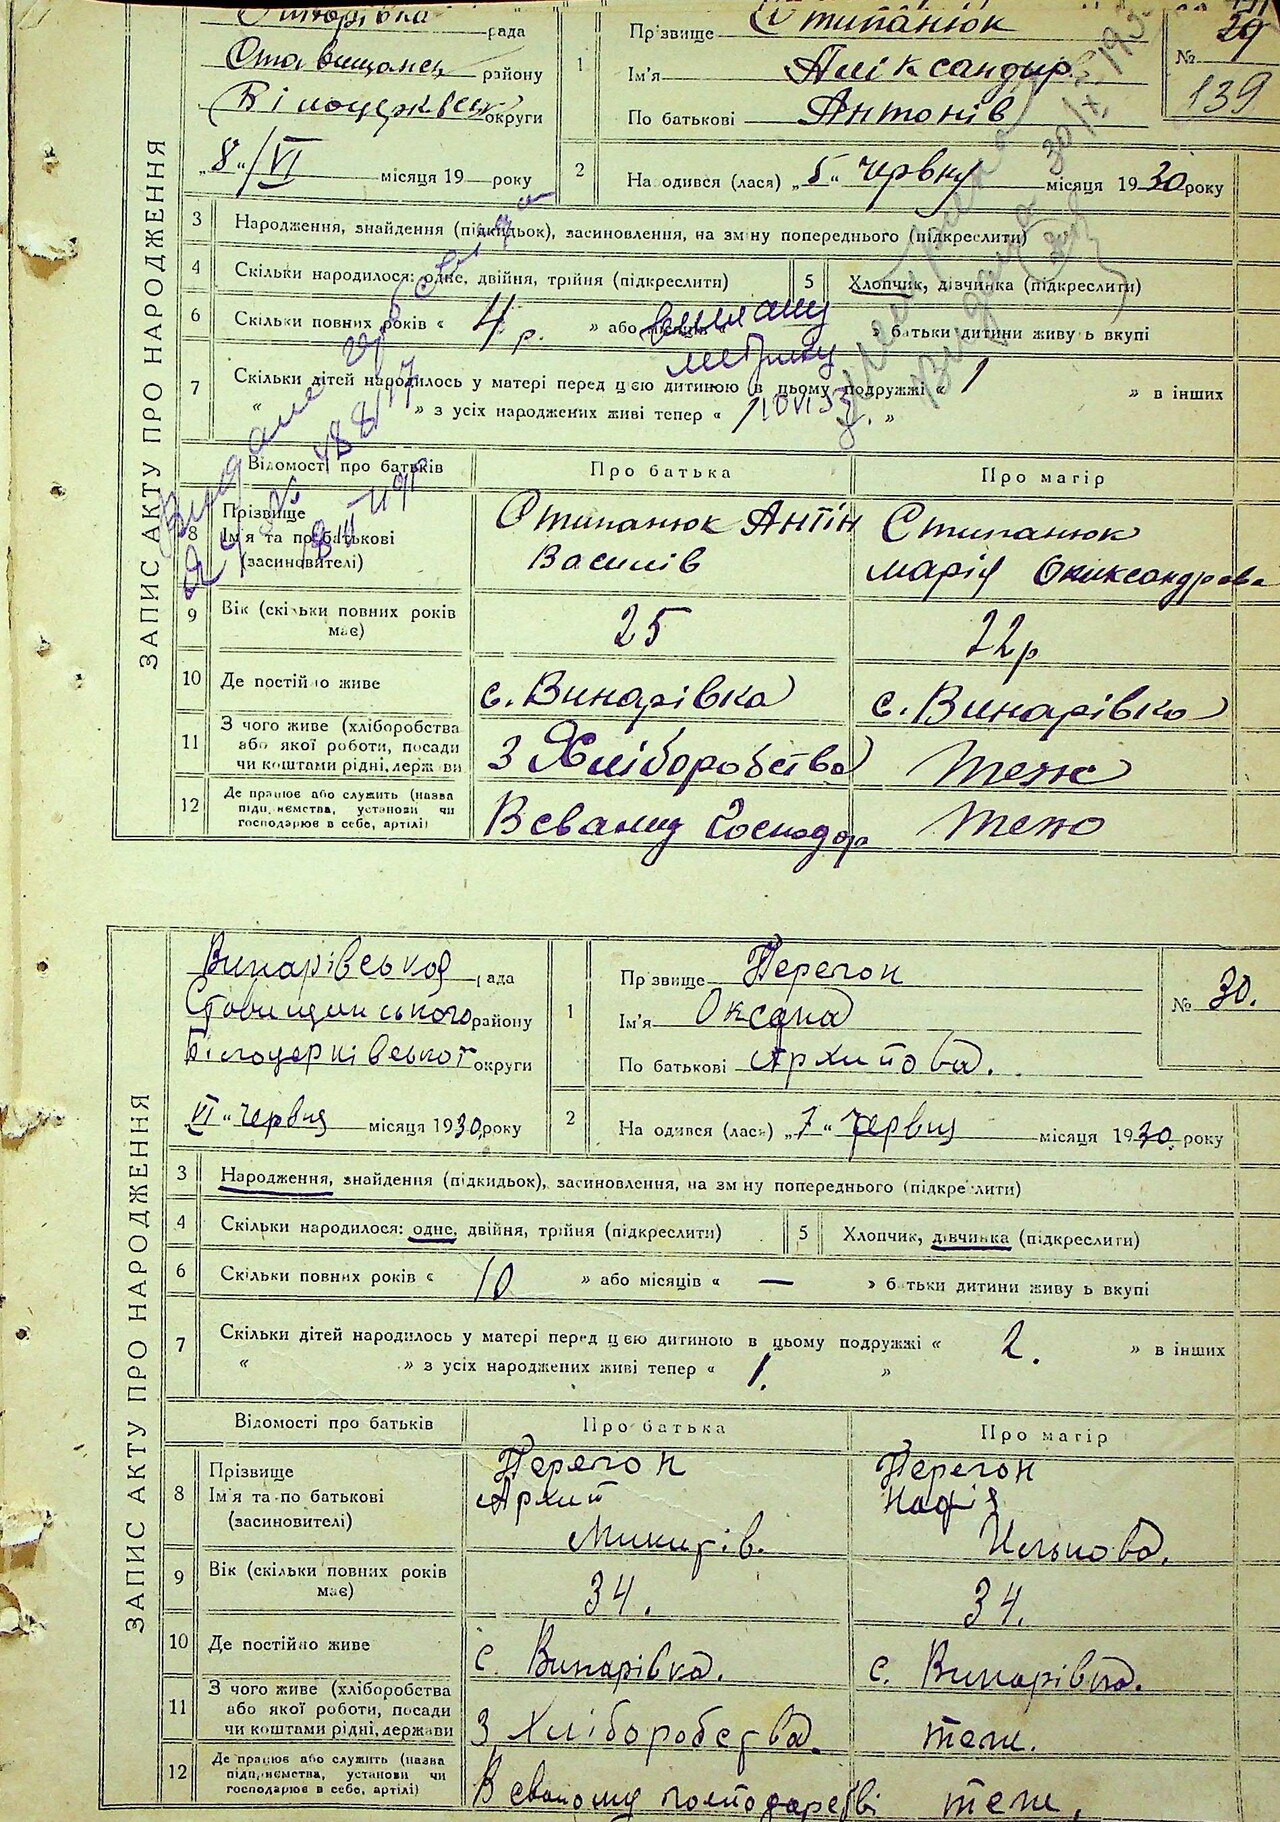 рада
Ставищанс району
Білоцерківс округи
„8“/VI місяця 19 року
1
Прізвище Стипанюк
Ім'я Аліксандыр
По батькові Антонів
№ 29
139
2
На одився (лася) „5“ червня місяця 1930 року
ЗАПИС АКТУ ПРО НАРОДЖЕННЯ
3 Народження, знайдення (підкидьок), засиновлення, на зміну попереднього (підкреслити)
4 Скільки народилося: одне, двійня, трійня (підкреслити)
5 Хлопчик, дівчинка (підкреслити)
6 Скільки повних років « 4 р. » або місяців « » батьки дитини живуть вкупі
метрику
7 Скільки дітей народилось у матері перед цією дитиною в цьому подружжі « 1 » в інших
“ » з усіх народжених живі тепер « 1 »
Відомості про батьків Про батька Про матір
8 Прізвище
Ім'я та по батькові
(засиновителі)
Стипанюк Антін
Василів
Стипанюк
Марія Оликсандрова
9 Вік (скільки повних років має) 25 22р
10 Де постійно живе с. Винарівка с. Винарівка
11 З чого живе (хліборобства
або якої роботи, посади
чи коштами рідні, держави
З Хліборобства Теж
12 Де працює або служить (назва
підприємства, установи чи
господарює в себе, артілі)
В сваиму Господар Теж
Винарівської рада
Ставищинського району
Білоцерківської округи
VI „ червня місяця 1930 року
1
Прізвище Перегон
Ім'я Оксана
По батькові Архипова.
№ 30.
2
На одився (лася) „7“ червня місяця 1930. року
ЗАПИС АКТУ ПРО НАРОДЖЕННЯ
3 Народження, знайдення (підкидьок), засиновлення, на зміну попереднього (підкреслити)
4 Скільки народилося: одне, двійня, трійня (підкреслити)
5 Хлопчик, дівчинка (підкреслити)
6 Скільки повних років « 10 » або місяців « — » батьки дитини живуть вкупі
7 Скільки дітей народилось у матері перед цією дитиною в цьому подружжі « 2. » в інших
“ » з усіх народжених живі тепер « 1. »
Відомості про батьків Про батька Про матір
8 Прізвище
Ім'я та по батькові
(засиновителі)
Перегон
Архип
Перегон
Илькова.
9 Вік (скільки повних років має) 34. 34.
10 Де постійно живе с. Винарівка. с. Винарівка.
11 З чого живе (хліборобства
або якої роботи, посади
чи коштами рідні, держави
З Хліборобства. теж.
12 Де працює або служить (назва
підприємства, установи чи
господарює в себе, артілі)
В своєму господарстві теж.